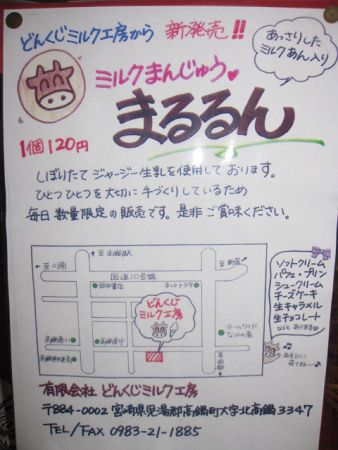 どんぐりミルク工房から 新発売!!
あっさりした
ミルクあん入り
ミルクまんじゅう♥
まるるん
1個120円
しぼりたてジャージー生乳を使用しております。
ひとつひとつを大切に手づくりしているため
毎日数量限定の販売です。是非ご賞味ください。
至高鍋駅
至川南
国道10号線
田中書店
ネットヨタ
どんぐり
ミルク工房
高鍋東小
高鍋東中
ホームワイド
ながの屋
ソフトクリーム
パフェ・プリン
シュークリーム
チーズケーキ
生キャラメル
生チョコレート
などもあります
あそびに
来てネ
有限会社 どんぐりミルク工房
〒884-0002 宮崎県児湯郡高鍋町大字北高鍋3347
TEL/FAX 0983-21-1885